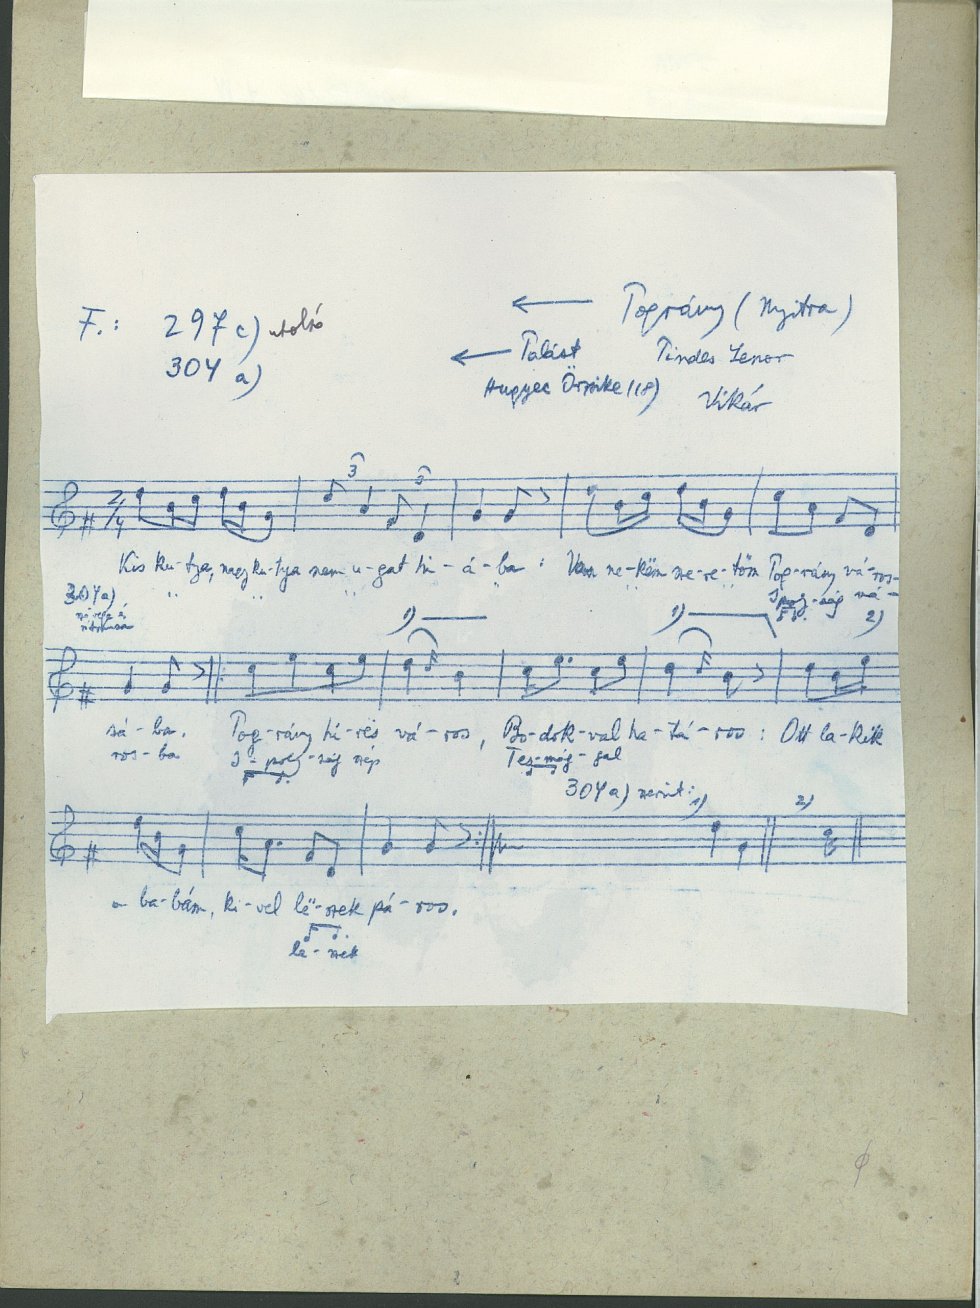 F.: 297 c) utolsó
304 a)
← Pográny (Nyitra)
← Palást Pindes Lenor
Hugyec Örzsike (18) Vikár
2/4 3 3
Kis ku-tya, nagy ku-tya nem u-gat hi-á-ba: Van ne-këm sze-re-tőm Pog-rány vá-ros-
" " " " " " " Ipoly-ság vá-
304 a)
1) 1) 2)
sá-ba. Pog-rány hí-res vá-ros, Bo-dok-val ha-tá-ros: Ott la-kik
ros-ba I-poly-ság szép Tes-mag-gal
304 a) szerint: 1) 2)
a ba-bám, ki-vel lë-szek pá-ros.
le-szek